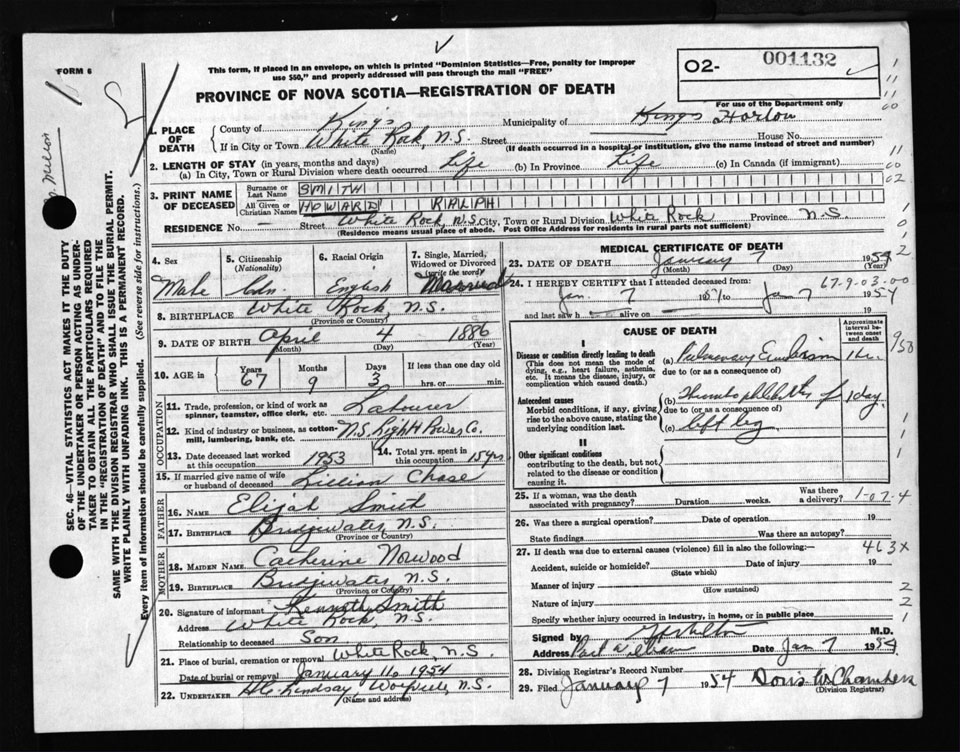 FORM 6
This form, if placed in an envelope, on which is printed "Dominion Statistics—Free, penalty for improper
use $50," and properly addressed will pass through the mail "FREE"
PROVINCE OF NOVA SCOTIA—REGISTRATION OF DEATH
O2- 001132
For use of the Department only
SEC. 46—VITAL STATISTICS ACT MAKES IT THE DUTY
OF THE UNDERTAKER OR PERSON ACTING AS UNDER-
TAKER TO OBTAIN ALL THE PARTICULARS REQUIRED
IN THE "REGISTRATION OF DEATH" AND TO FILE THE
SAME WITH THE DIVISION REGISTRAR WHO SHALL ISSUE THE BURIAL PERMIT.
WRITE PLAINLY WITH UNFADING INK. THIS IS A PERMANENT RECORD.
Every item of information should be carefully supplied. (See reverse side for instructions.)
1. PLACE OF DEATH
County of Kings Municipality of Kings Horton
If in City or Town White Rock, N.S. Street House No.
(Name) (If death occurred in a hospital or institution, give the name instead of street and number)
2. LENGTH OF STAY (in years, months and days)
(a) In City, Town or Rural Division where death occurred Life (b) In Province Life (c) In Canada (if immigrant)
3. PRINT NAME OF DECEASED
Surname or Last Name SMITH
All Given or Christian Names HOWARD RALPH
RESIDENCE No. — Street White Rock, N.S. City, Town or Rural Division White Rock Province N.S.
(Residence means usual place of abode. Post Office Address for residents in rural parts not sufficient)
4. Sex Male
5. Citizenship (Nationality) Cdn.
6. Racial Origin English
7. Single, Married, Widowed or Divorced (write the word) Married
8. BIRTHPLACE White Rock, N.S.
(Province or Country)
9. DATE OF BIRTH April 4 1886
(Month) (Day) (Year)
10. AGE in Years 67 Months 9 Days 3 If less than one day hrs. or min.
OCCUPATION
11. Trade, profession, or kind of work as spinner, teamster, office clerk, etc. Labourer
12. Kind of industry or business, as cotton-mill, lumbering, bank, etc. N.S. Light & Power Co.
13. Date deceased last worked at this occupation 1953
14. Total yrs. spent in this occupation 15 yrs
15. If married give name of wife or husband of deceased Lillian Chase
FATHER
16. NAME Elijah Smith
17. BIRTHPLACE Bridgewater, N.S.
(Province or Country)
MOTHER
18. MAIDEN NAME Catherine Norwood
19. BIRTHPLACE Bridgewater, N.S.
(Province or Country)
20. Signature of informant Kenneth Smith
Address White Rock, N.S.
Relationship to deceased Son
21. Place of burial, cremation or removal White Rock, N.S.
Date of burial or removal January 11, 1954
22. UNDERTAKER H.C. Lindsay, Wolfville N.S.
(Name and address)
MEDICAL CERTIFICATE OF DEATH
23. DATE OF DEATH January 7 1954
(Month) (Day) (Year)
24. I HEREBY CERTIFY that I attended deceased from: 67-9-03-00
Jan. 7 195 / to Jan 7 1954
and last saw h alive on 19
CAUSE OF DEATH
Approximate interval between onset and death
I
Disease or condition directly leading to death
(This does not mean the mode of dying, e.g., heart failure, asthenia, etc. It means the disease, injury, or complication which caused death.)
(a) Pulmonary Embolism
due to (or as a consequence of)
Antecedent causes
Morbid conditions, if any, giving rise to the above cause, stating the underlying condition last.
(b) Thrombophlebitis of 1 day
due to (or as a consequence of)
(c) left leg
II
Other significant conditions
contributing to the death, but not related to the disease or condition causing it.
9/58
25. If a woman, was the death associated with pregnancy? Duration weeks. Was there a delivery? 1-07-4
26. Was there a surgical operation? Date of operation 19
State findings Was there an autopsy?
27. If death was due to external causes (violence) fill in also the following: 463X
Accident, suicide or homicide? Date of injury 19
(State which)
Manner of injury
(How sustained)
Nature of injury
Specify if injury occurred in industry, in home, or in public place
Signed by M.D.
Address Port Williams Date Jan 7 1954
28. Division Registrar's Record Number
29. Filed January 7 1954 Doris W. Chambers
(Division Registrar)